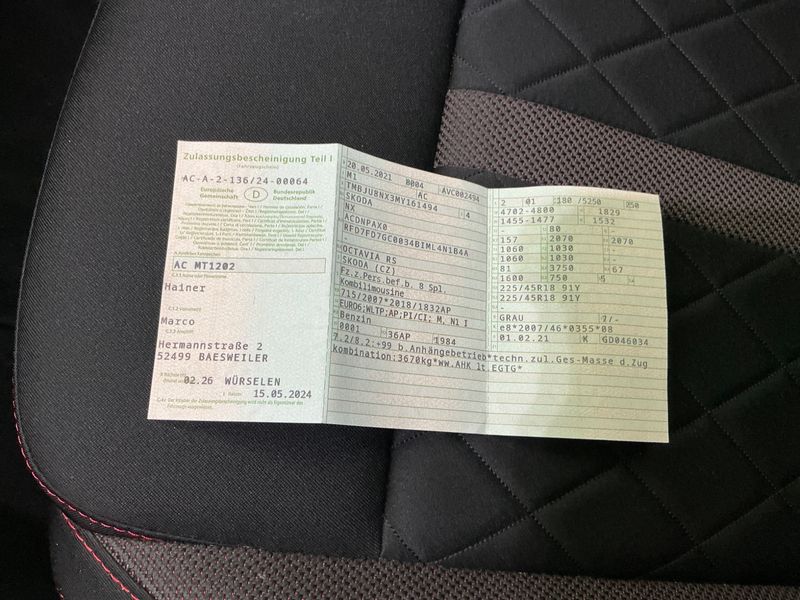 Zulassungsbescheinigung Teil I
(Fahrzeugschein)
AC-A-2-136/24-00064
Europäische Gemeinschaft
D
Bundesrepublik Deutschland
AC MT1202
Hainer
Marco
Hermannstraße 2
52499 BAESWEILER
02.26 WÜRSELEN
15.05.2024
20.05.2021 8004 AVC002494
M1 AC
TMBJU8NX3MY161494 4
SKODA
NX
ACDNPAX0
RFD7FD7GC0034BIML4N1B4A
OCTAVIA RS
SKODA (CZ)
Fz.z.Pers.bef.b. 8 Spl.
Kombilimousine
715/2007*2018/1832AP
EURO6;WLTP;AP;PI/CI; M, N1 I
Benzin
0001 36AP 1984
7.2/8.2:+99 b.Anhängebetrieb*techn.zul.Ges-Masse d.Zug
kombination:3670kg*ww.AHK lt.EGTG*
2 01 180 /5250 250
4702-4800 1829
1455-1477 1532
- 80 -
157 2070 2070
1060 1030 -
1060 1030 -
81 3750 67
1600 750 5 -
225/45R18 91Y
225/45R18 91Y
-
GRAU 7/-
e8*2007/46*0355*08
01.02.21 K GD046034